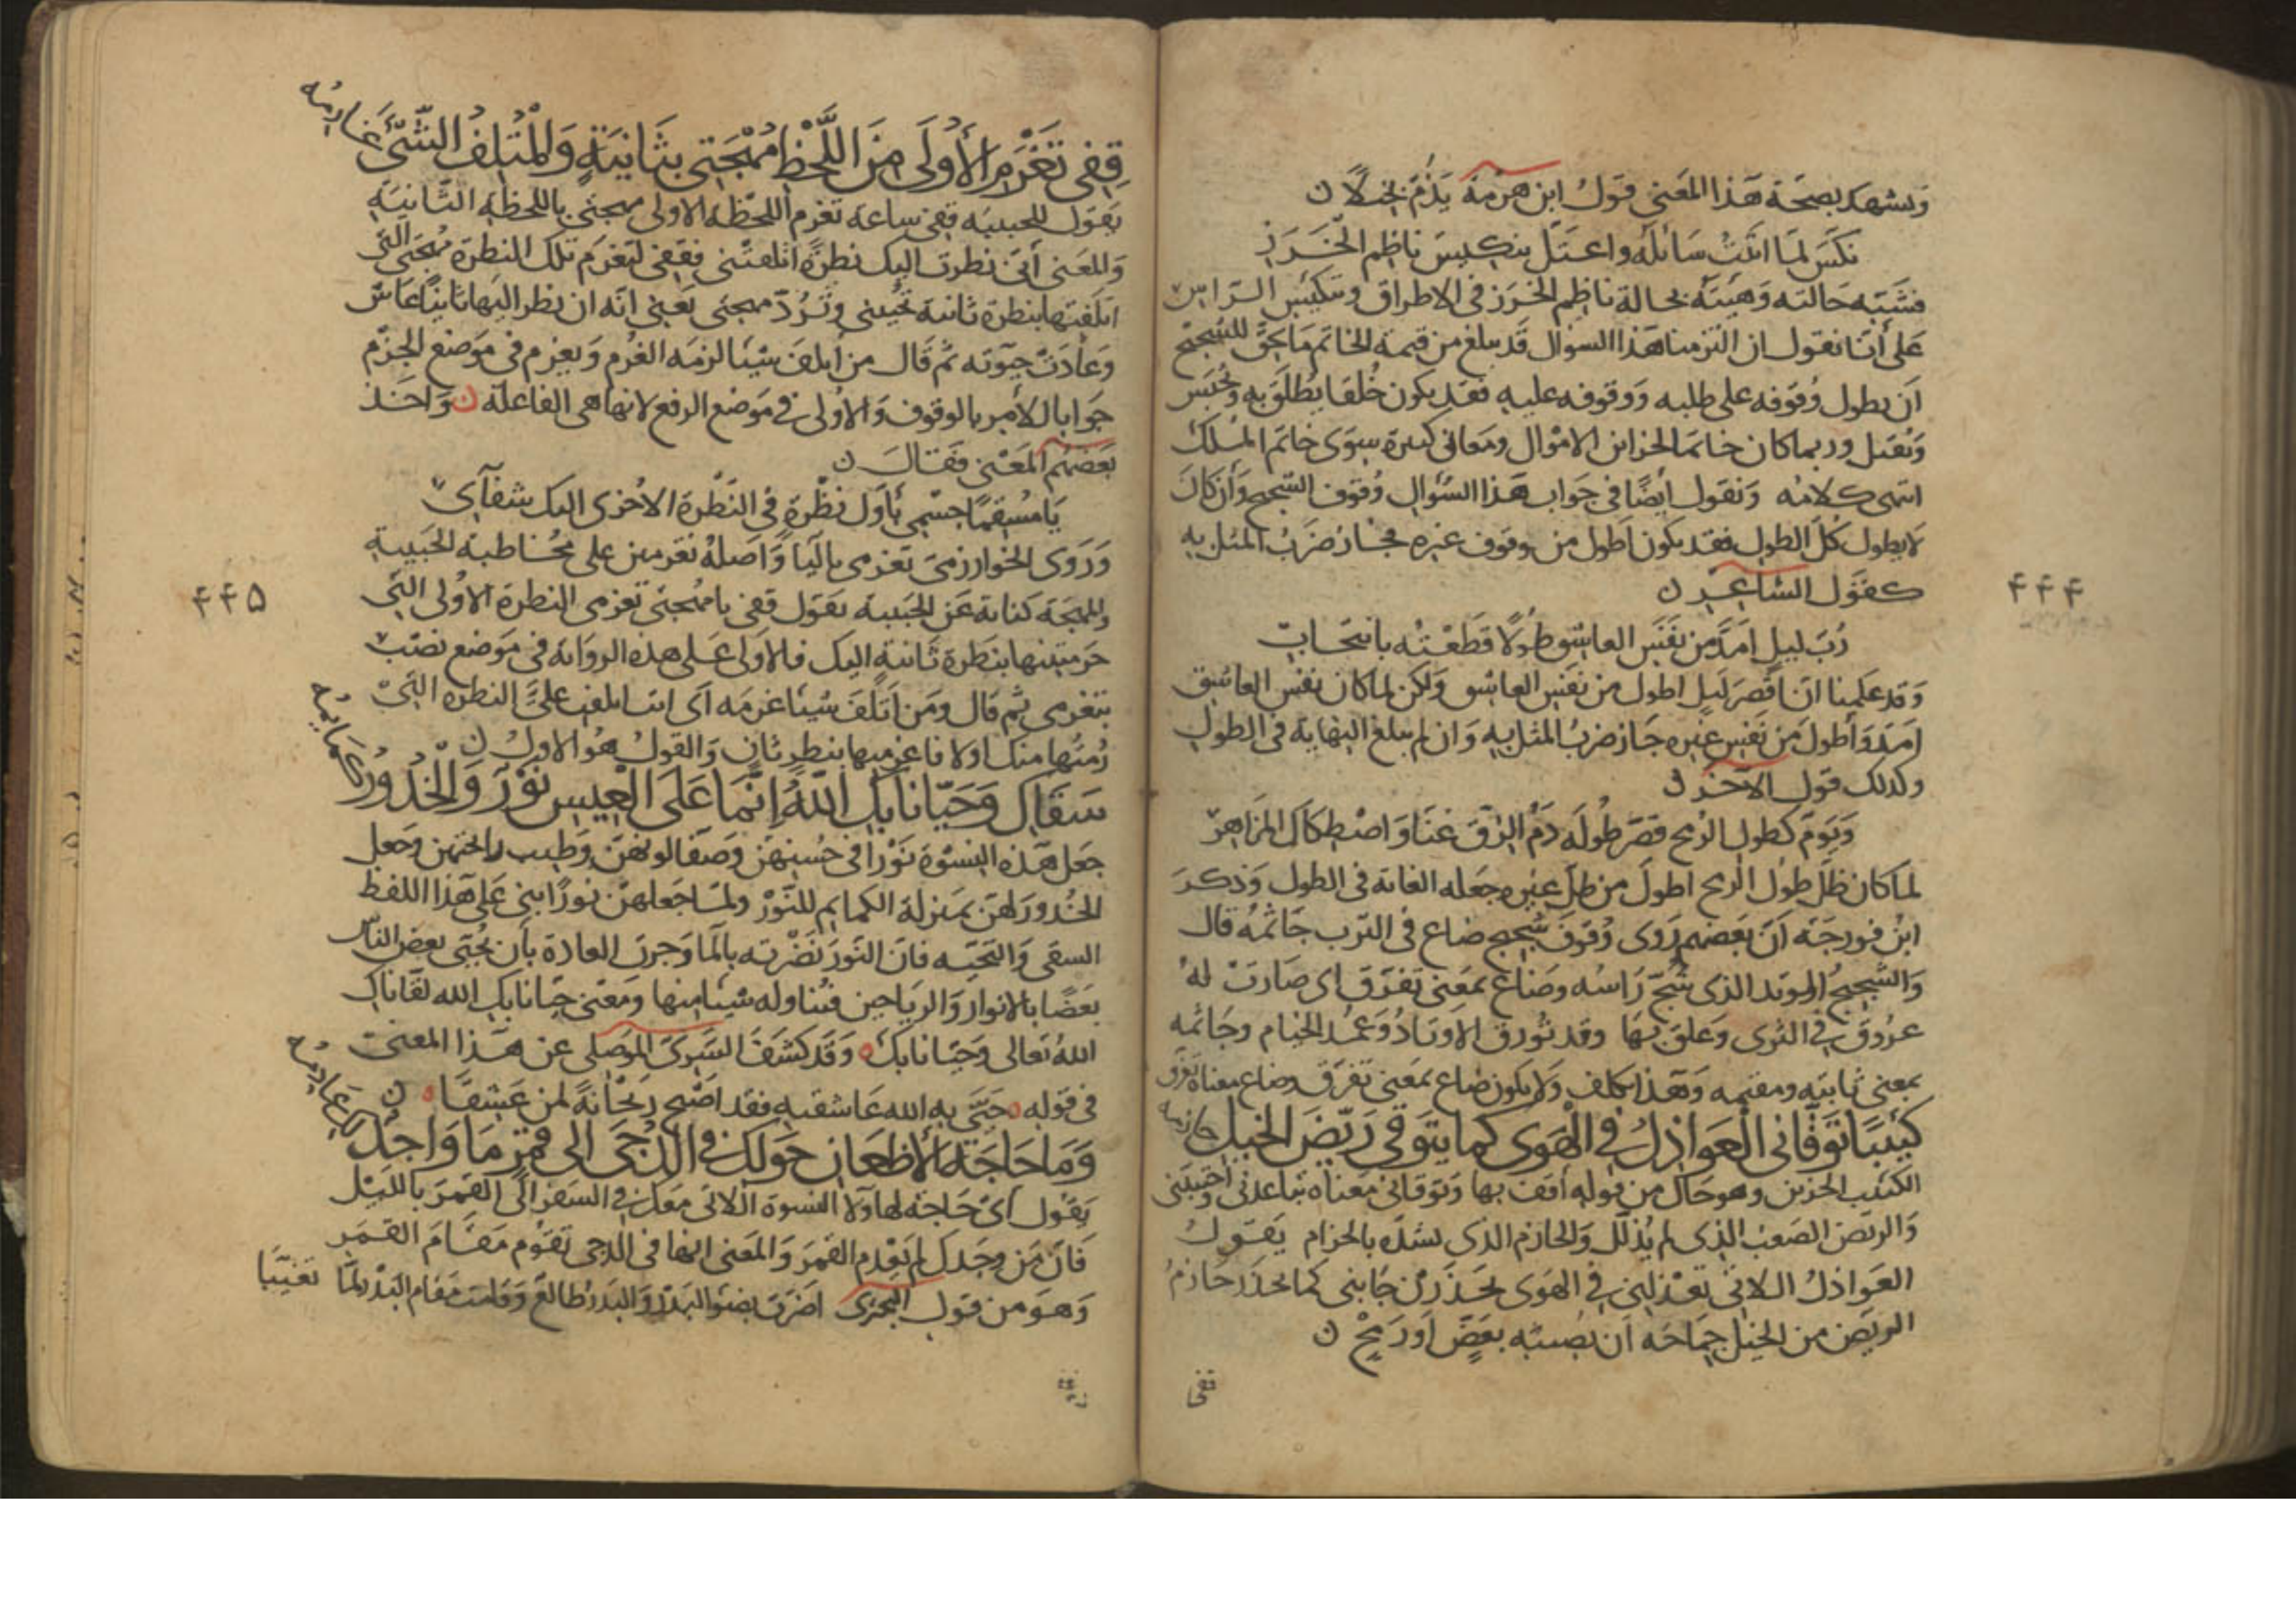 ويشهد بصحة هذا المعنى قول ابن هرمة يذم بخيلاً
نكس لما اتيت سائله واعتل تنكيس ناظم الخرز
فشبه حالته وهيئته بحالة ناظم الخرز في الاطراق وتنكيس الراس
على أنا نقول ان التزمنا هذا السؤال قد يبلغ من قيمة الخاتم ما يحق للشحيح
أن يطول وقوفه على طلبه ووقوفه عليه فقد يكون خلفا يطلق به ويحبس
ويقتل وربما كان خاتما لخزاين الاموال ومعاني كثيرة سوى خاتم الملك
انتهى كلامه ونقول أيضًا في جواب هذا السؤال وقوف الشحيح وان كان
لا يطول كل الطول فقد يكون اطول من وقوف غيره فجاز ضرب المثل به
كقول الشاعر
رب ليل امد من نفس العاشق طولاً قطعته بانتحاب
وقد علمنا ان اقصر ليل اطول من نفس العاشق ولكن لما كان نفس العاشق
امد وأطول من نفس غيره جاز ضرب المثل به وان لم يبلغ النهاية في الطول
وكذلك قول الآخر
ويوم كطول الرمح قصر طوله دم الزق عنا واصطكاك المزاهر
لما كان ظل طول الرمح اطول من ظل غيره جعله الغاية في الطول وذكر
ابن فورجة أن بعضهم روى وقوف شجيج ضاع في الترب خاتمه قال
والشجيج الوتد الذي شج راسه وضاع بمعنى تفرق اى صارت له
عروق في الثرى وعلق بها وقد تورق الاوتاد وعمد الخيام وخاتمه
بمعنى ثابته ومقيمه وهذا تكلف ولا يكون ضاع بمعنى تفرق وضاع معناه تفرق
كئيبًا توقاني العواذل في الهوى كما يتوقى ريض الخيل حازمه
الكئيب الحزين وهو حال من قوله أقف بها وتوقاني معناه تباعدني واجتنبني
والريض الصعب الذي لم يذلل والحازم الذي يشده بالحزام يقول
العواذل اللاتي تعذلينني في الهوى يحذرن جانبي كما يحذر حازم
الريض من الخيل جماحه ان يصيبه بعض او رمح
قفي
۴۴۴
قفي تغرم الأولى من اللحظ مهجتي بثانية والمتلف الشيء غارمه
يقول للحبيبة قفي ساعة تغرم اللحظة الاولى مهجتي باللحظة الثانية
والمعنى أني نظرت اليك نظرة اتلفتني فقفي لتغرم تلك النظرة مهجتي التي
اتلفتها بنظرة ثانية تحييني وترد مهجتي يعني انه ان نظر اليها ثانيًا عاش
وعادت حيوته ثم قال من اتلف شيئا لزمه الغرم ويغرم في موضع الجزم
جوابا للامر بالوقوف والاولى في موضع الرفع لانها هي الفاعلة واخذ
بعضهم المعنى فقال
يا مسقمًا جسمي باول نظرة في النظرة الاخرى اليك شفآيى
وروى الخوارزمي تغرمي باليا واصله تغرمين على مخاطبة الحبيبة
والمهجة كناية عن الحبيبة يقول قفي يا مهجتي تغرمي النظرة الاولى التي
حرمتنيها بنظرة ثانية اليك فالاولى على هذه الرواية في موضع نصب
بتغرمي ثم قال ومن اتلف شيئا غرمه أي انت اتلفت علي النظرة التي
رمتها منك اولا فاغرميها بنظر ثان والقول هو الاول
سقاك وحيانا بك الله إنما على العيس نور والخدور كمايمه
جعل هذه النسوة نورا في حسنهن وصفا لونهن وطيب رائحتهن وجعل
الخدور لهن بمنزلة الكمايم للنور ولما جعلهن نورًا بنى على هذا اللفظ
السقى والتحية فان النور نضرته بالما وجرت العادة بأن يحيى بعض الناس
بعضًا بالانوار والرياحين فتناوله شيئا منها ومعنى حيانا بك الله لقانا بك
الله تعالى وحيانا بك وقد كشف السري الموصلي عن هذا المعنى
في قوله حيى به الله عاشقيه فقد اصبح ريحانة لمن عشقا
وما حاجة الأظعان حولك في الدجى الى قمر ما واجد لك عادمه
يقول أي حاجة لهاولا النسوة اللاتي معك في السفر الى القمر بالليل
فان من وجدك لم يعدم القمر والمعنى انها في الدجى تقوم مقام القمر
وهو من قول البحترى اضرت بضو البدر والبدر طالع وقامت مقام البدر لما تغيبا
۴۴۵